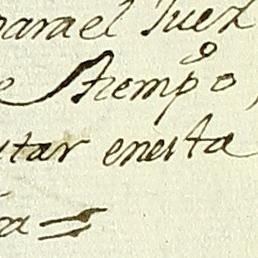 parael Juez
e Tiempo,
utar enesta
ra =